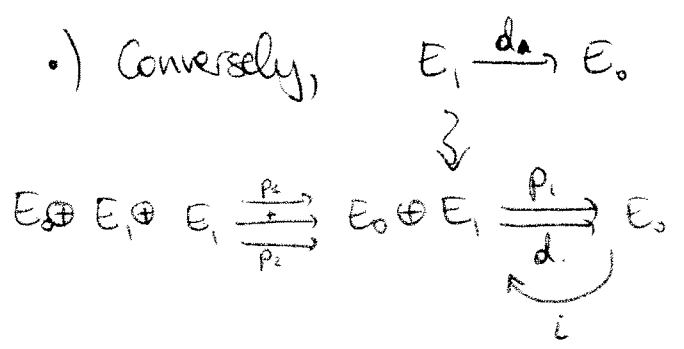 •) Conversely, E₁ →^{d} E₀
⇝
E₀ ⊕ E₁ ⊕ E₁ ⇶^{p₁, +, p₂} E₀ ⊕ E₁ ⇉^{p₁}_{d} E₀
i